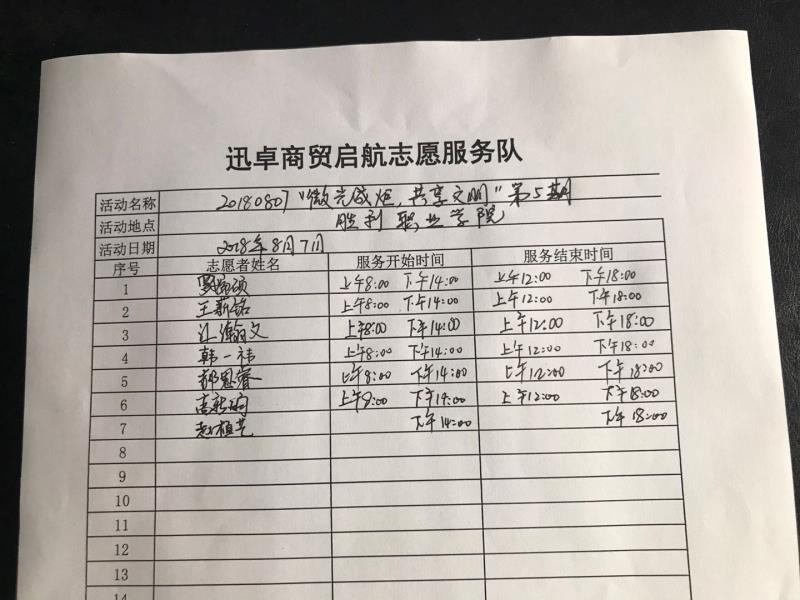 迅卓商贸启航志愿服务队
活动名称 20180807“微光成炬，共享文明”第5期
活动地点 胜利职业学院
活动日期 2018年8月7日
序号 志愿者姓名 服务开始时间 服务结束时间
1 上午8:00 下午14:00 上午12:00 下午18:00
2 王新铭 上午8:00 下午14:00 上午12:00 下午18:00
3 江瀚文 上午8:00 下午14:00 上午12:00 下午18:00
4 韩一祎 上午8:00 下午14:00 上午12:00 下午18:00
5 郝思睿 上午8:00 下午14:00 上午12:00 下午18:00
6 上午8:00 下午14:00 上午12:00 下午18:00
7 赵植艺 下午14:00 下午18:00
8
9
10
11
12
13
14